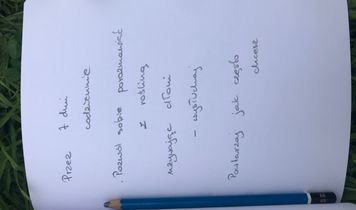 Przez 7 dni
codziennie
. Pozwól sobie porozmawiać
z rośliną,
używając dłoni
- wysłuchaj
Powtarzaj jak często
chcesz